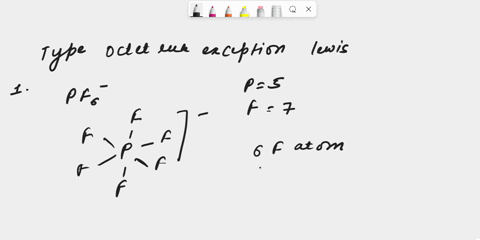 Type octet rule exception lewis
1.
PF6⁻
P = 5
F = 7
F
F F
P
F F
F
−
6 F atom